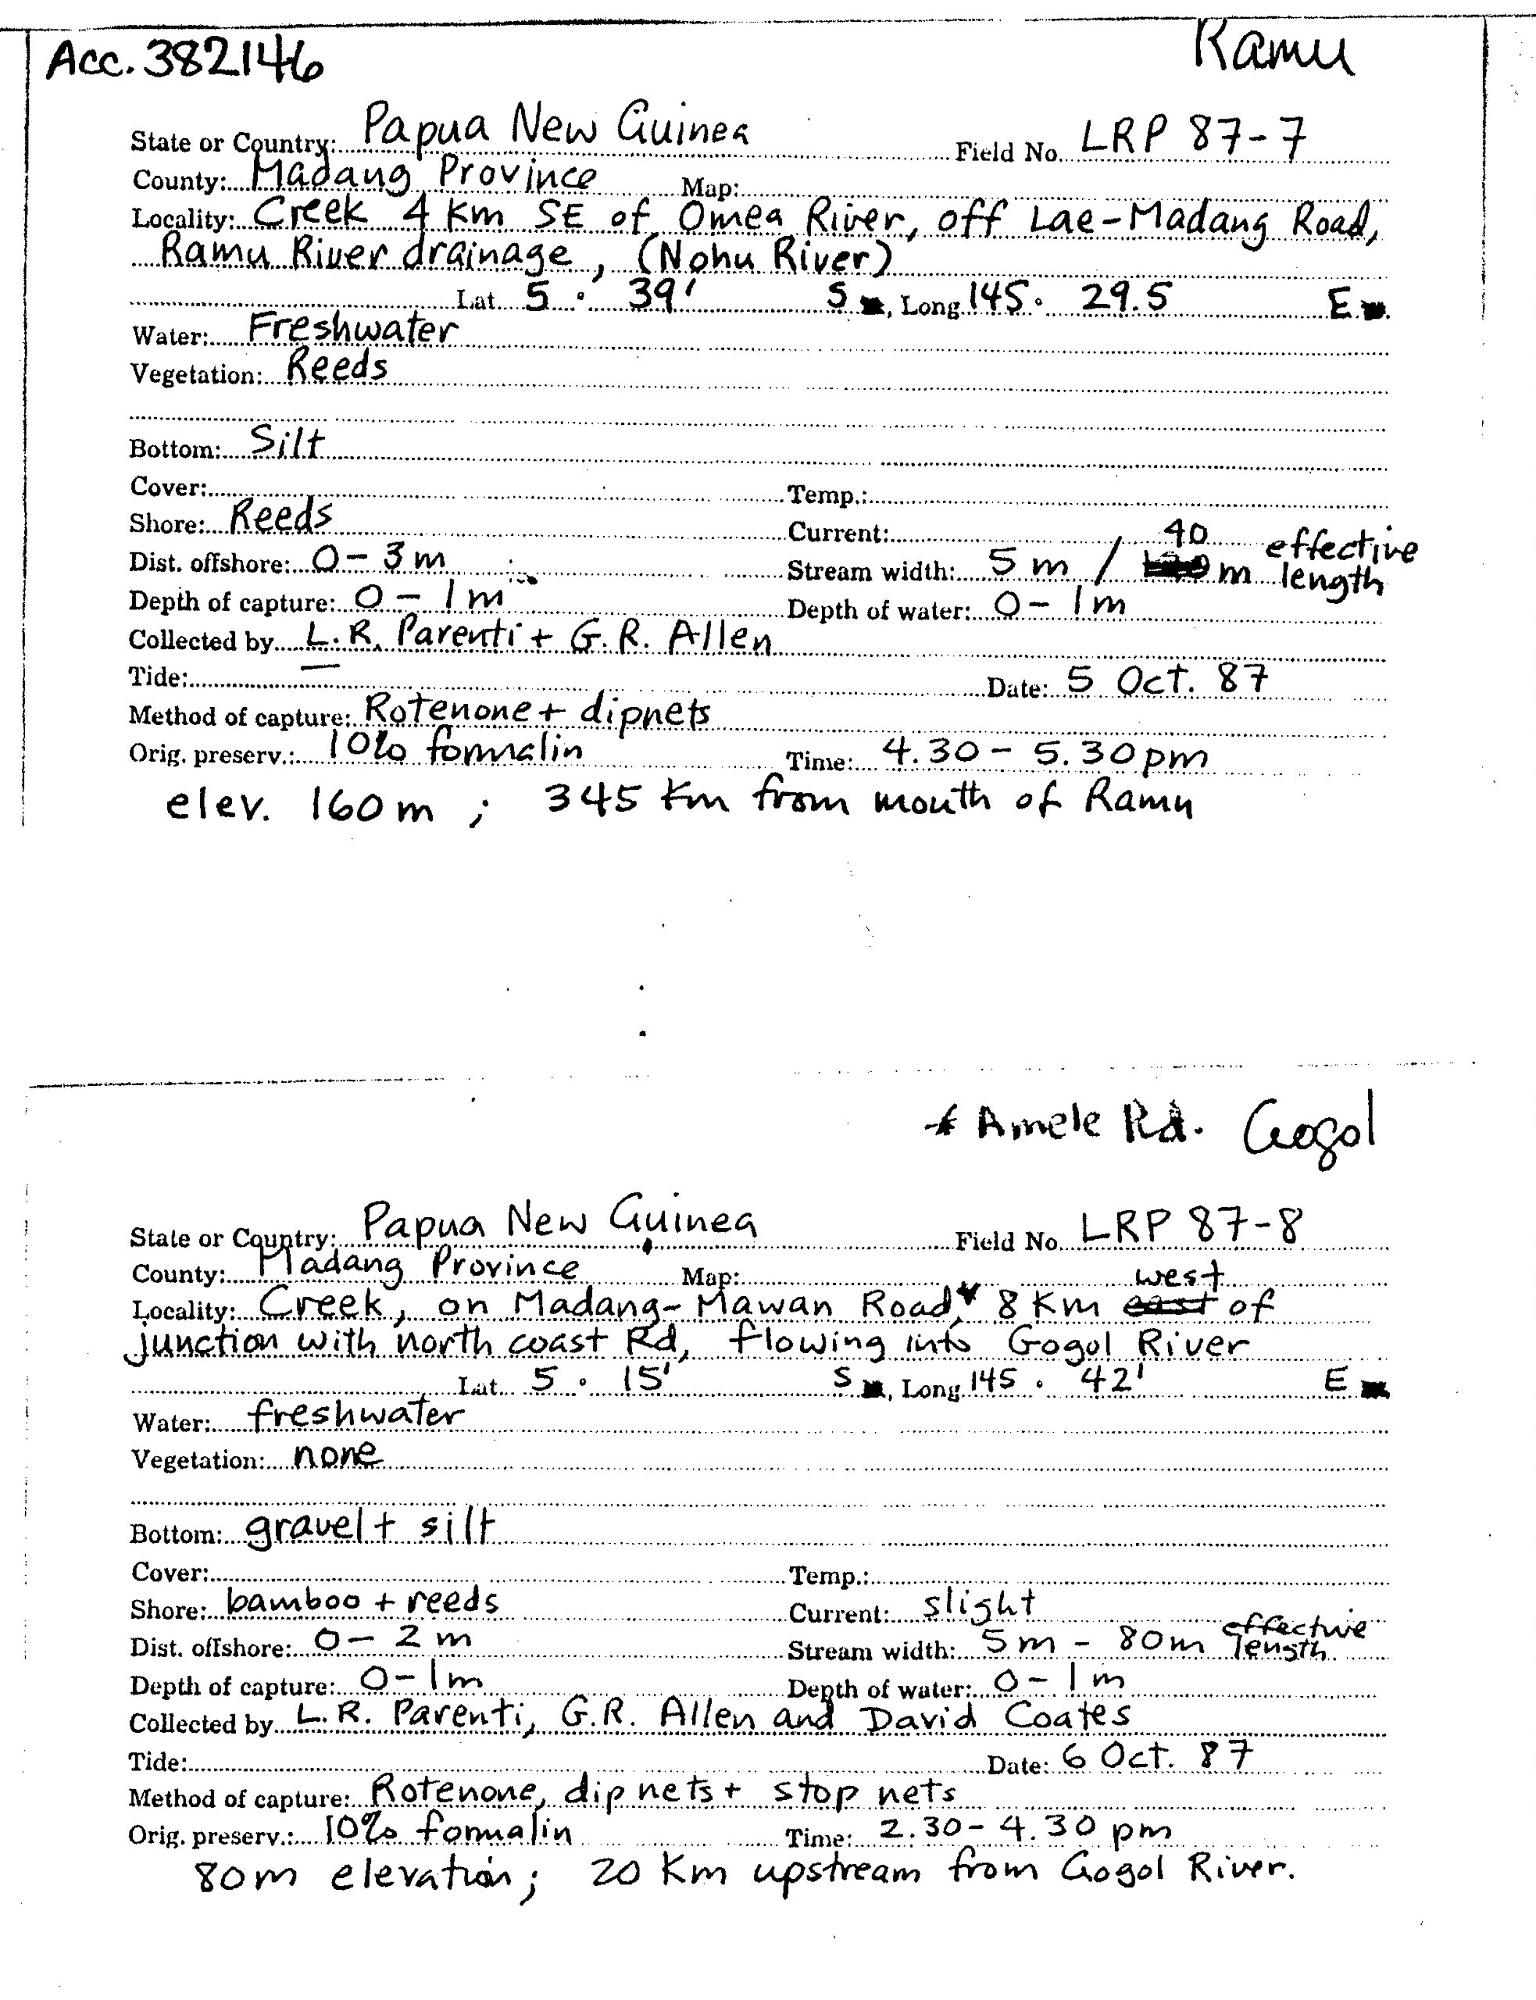 Acc. 382146 Ramu
State or Country: Papua New Guinea Field No. LRP 87-7
County: Madang Province Map:
Locality: Creek 4 Km SE of Omea River, off Lae-Madang Road,
Ramu River drainage, (Nohu River)
Lat. 5 ° 39' S, Long. 145 ° 29.5 E
Water: Freshwater
Vegetation: Reeds
Bottom: Silt
Cover: Temp.:
Shore: Reeds Current:
Dist. offshore: 0 - 3 m Stream width: 5 m / 40 m effective length
Depth of capture: 0 - 1 m Depth of water: 0 - 1m
Collected by L.R. Parenti + G.R. Allen
Tide: — Date: 5 Oct. 87
Method of capture: Rotenone + dipnets
Orig. preserv.: 10% formalin Time: 4.30 - 5.30 pm
elev. 160 m ; 345 Km from mouth of Ramu
* Amele Rd. Gogol
State or Country: Papua New Guinea Field No. LRP 87-8
County: Madang Province Map:
Locality: Creek, on Madang-Mawan Road,* 8 Km east west of
junction with north coast Rd, flowing into Gogol River
Lat. 5 ° 15' S, Long. 145 ° 42' E
Water: freshwater
Vegetation: none
Bottom: gravel + silt
Cover: Temp.:
Shore: bamboo + reeds Current: slight
Dist. offshore: 0 - 2 m Stream width: 5 m - 80 m effective length
Depth of capture: 0 - 1 m Depth of water: 0 - 1 m
Collected by L.R. Parenti, G.R. Allen and David Coates
Tide: Date: 6 Oct. 87
Method of capture: Rotenone, dip nets + stop nets
Orig. preserv.: 10% formalin Time: 2.30 - 4.30 pm
80 m elevation; 20 Km upstream from Gogol River.